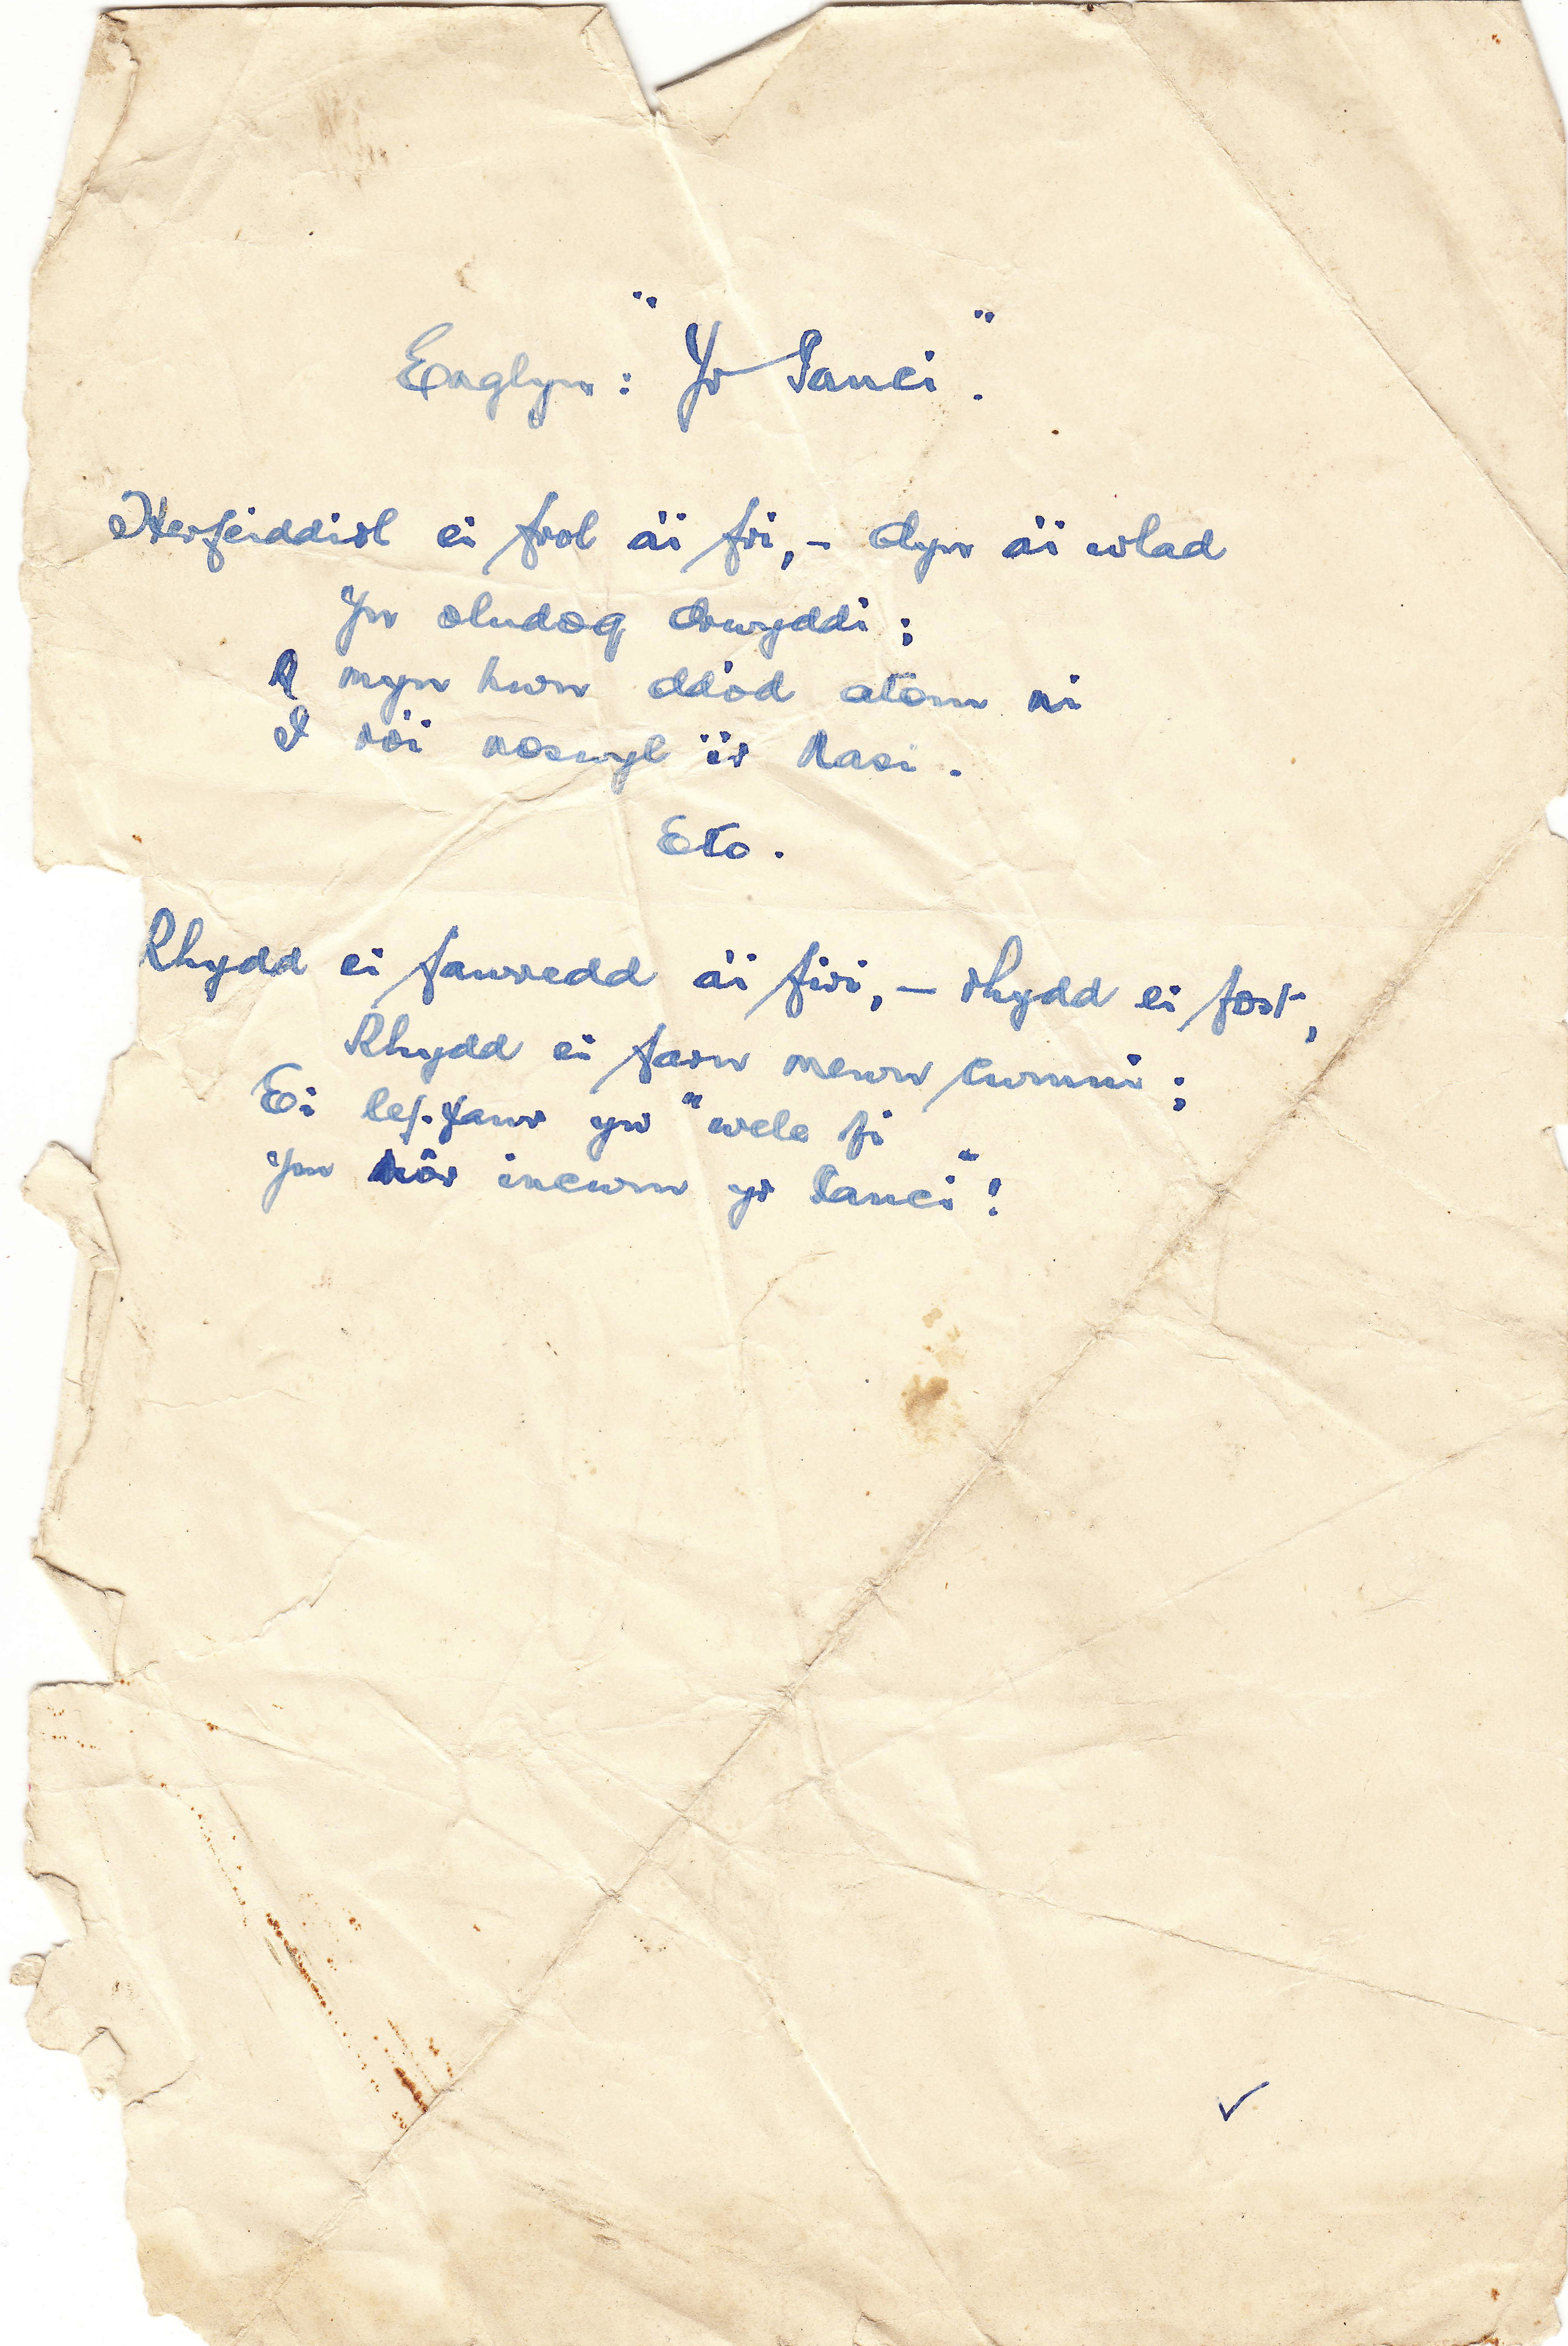 Englyn: "Yr Ianci".
Herfeiddiol ei frol a'i fri, - dyn a'i wlad
Yn oludog drwyddi;
A myn hwn ddod atom ni
I roi noswyl i'r Nasi.
Eto.
Rhydd ei fawredd a'i firi, - rhydd ei fost,
Rhydd ei farn mewn cwmni;
Ei lef fawr yw "wele fi
Yn incwm yr Ianci"!